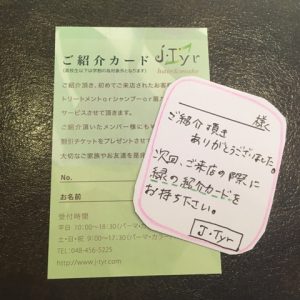 ご紹介カード
j·Tyr
(高校生以下は学割の為対象外となります)
ご紹介頂き、初めてご来店されたお客
トリートメントorシャンプーor眉
サービスさせて頂きます。
ご紹介頂いたメンバー様にも
割引チケットをプレゼントさせて
大切なご家族やお友達を是非
No.
お名前
受付時間
平日 10:00～18:30(パーマ・カラー
土・日・祝 9:00～17:30(パーマ
TEL:048-456-5225
http://www.j-tyr.com
様
ご紹介頂き
ありがとうございました。
次回、ご来店の際に
緑の紹介カードを
お持ち下さい。
J-Tyr